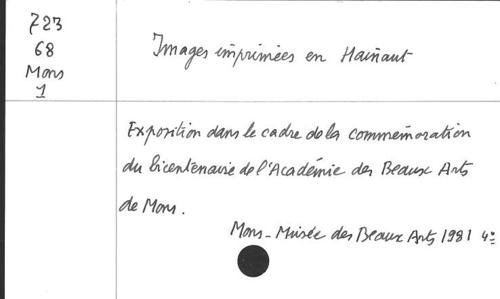 723
68
Mons
1
Images imprimées en Hainaut
Exposition dans le cadre de la commémoration
du bicentenaire de l'Académie des Beaux Arts
de Mons.
Mons - Musée des Beaux Arts 1981 4°